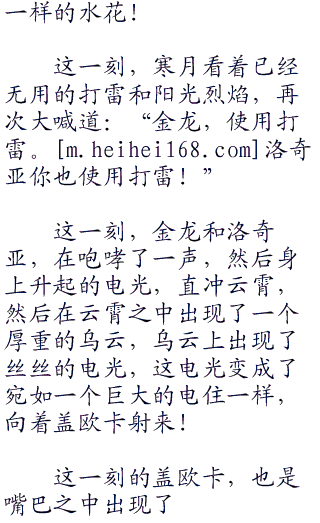 一样的水花！
这一刻，寒月看着已经
无用的打雷和阳光烈焰，再
次大喊道：“金龙，使用打
雷。[m.heihei168.com]洛奇
亚你也使用打雷！”
这一刻，金龙和洛奇
亚，在咆哮了一声，然后身
上升起的电光，直冲云霄，
然后在云霄之中出现了一个
厚重的乌云，乌云上出现了
丝丝的电光，这电光变成了
宛如一个巨大的电住一样，
向着盖欧卡射来！
这一刻的盖欧卡，也是
嘴巴之中出现了